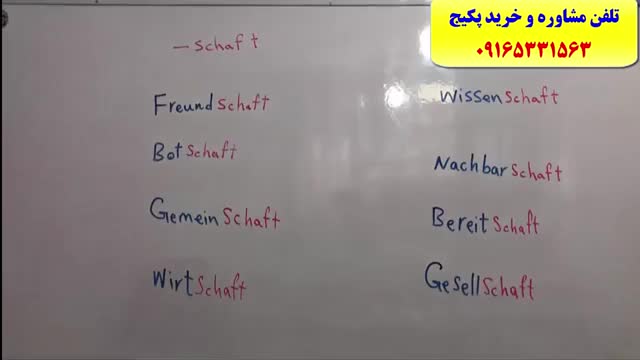 تلفن مشاوره و خرید پکیج
۰۹۱۶۵۳۳۱۵۶۳
– schaft
Freundschaft
Botschaft
Gemeinschaft
Wirtschaft
Wissenschaft
Nachbarschaft
Bereitschaft
Gesellschaft